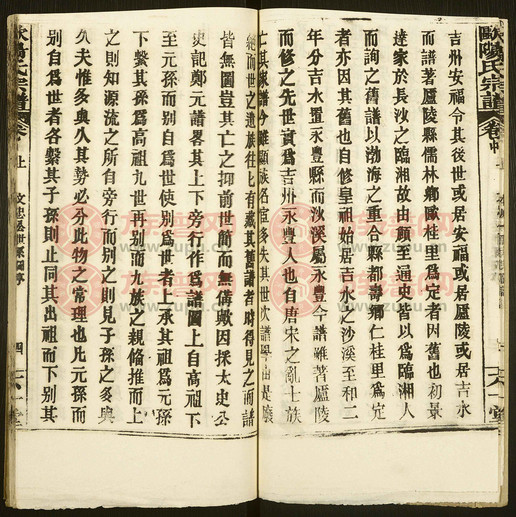 歐陽氏宗譜
卷首
吉州安福令其後世或居安福或居廬陵或居吉水
而譜著廬陵縣儒林鄉歐桂里爲定者因舊也初景
達家於長沙之臨湘故由顏至通史皆以爲臨湘人
而詢之舊譜以渤海之重合縣都壽鄉仁桂里爲定
者亦因其舊也自修皇祖始居吉水之沙溪至和二
年分吉水置永豐縣而沙溪屬永豐今譜雖著廬陵
而修之先世實爲吉州永豐人也自唐宋之亂士族
亡其家譜今雖顯族名臣多失其世次譜學由是廢
絕而世之遺族往往有藏其舊譜者時得見之而譜
皆無圖豈其亡之抑前世簡而無傳歟因採太史公
史記鄭元譜畧其上下旁行作爲譜圖上自高祖下
至元孫而別自爲世使別爲世者上承其祖爲元孫
下繫其孫爲高祖九世再別而九族之親脩推而上
之則知源流之所自旁行而別之則見子孫之多與
久夫惟多與久其勢必分此物之常理也凡元孫而
別自爲世者各繫其子孫則止同其出祖而下別其
歐陽氏宗譜
卷首
上
文忠公世系圖序
四
六一堂